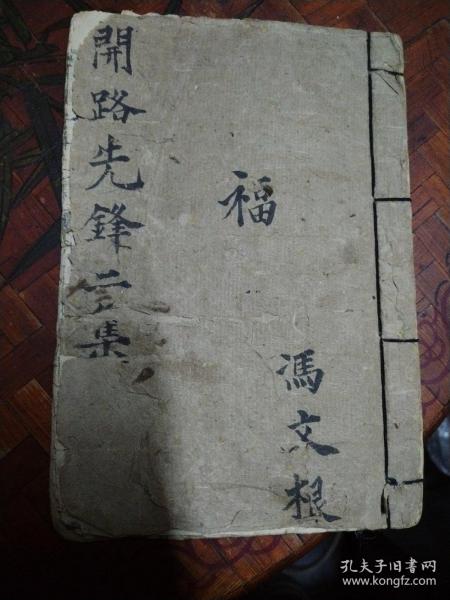 開路先鋒二集
福
馮文根
孔夫子旧书网
www.kongfz.com